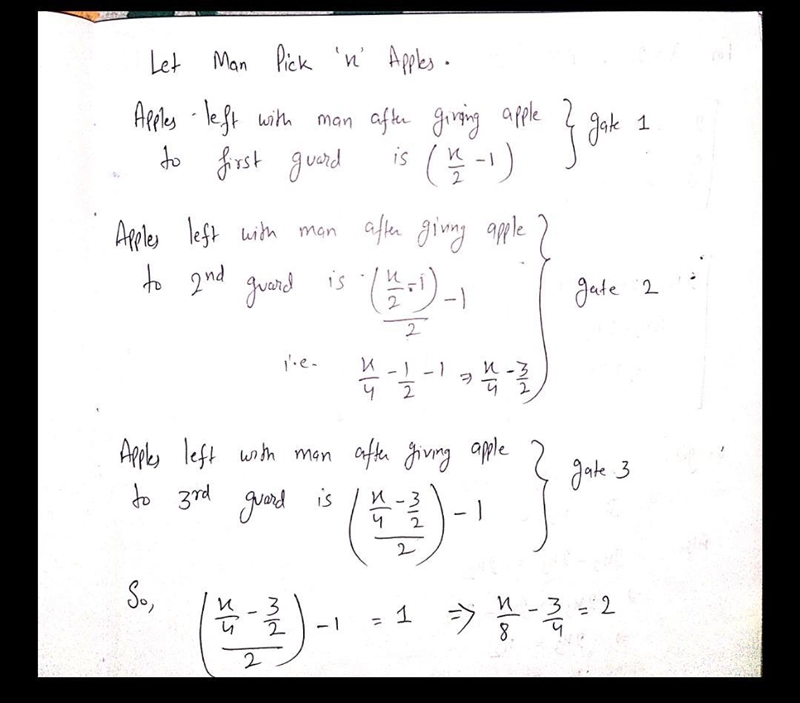 Let Man Pick 'n' Apples.
Apples left with man after giving apple } gate 1
to first guard is (n/2 - 1)
Apples left with man after giving apple
to 2nd guard is (n/2 - 1)/2 - 1 } gate 2
i.e. n/4 - 1/2 - 1 ⇒ n/4 - 3/2
Apples left with man after giving apple } gate 3
to 3rd guard is (n/4 - 3/2)/2 - 1
So, (n/4 - 3/2)/2 - 1 = 1 ⇒ n/8 - 3/4 = 2